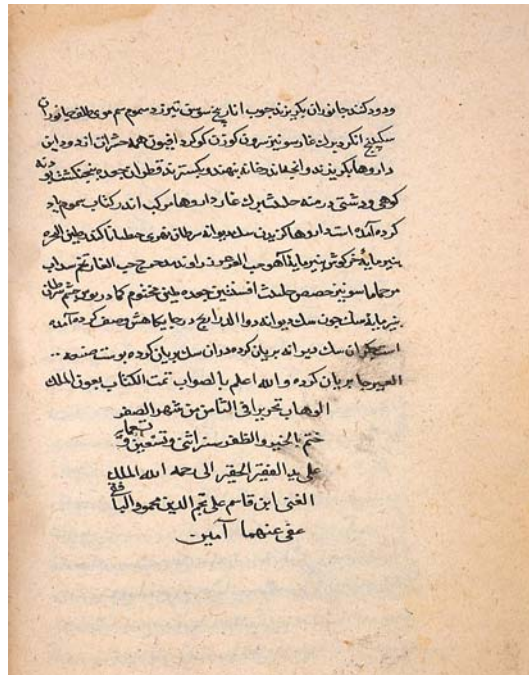 ودود کنند جانوران بگریزند چوب انار بیخ سوسن تیوزد سموم سم موی طلف جانوران
سکبینج انگرد برك غار سونیز سرون کوزن کوکرد ایچون همه حشرات از دود این
داروها بکریزند و انجدان خانه بنهند و بکسترند قطران جعده پنجنکشت بودنه
کوهی و دشتی درمنه حلتیت برك غار داروها مرکب اندر کتاب سموم یاد
کرده آمده است داروها کزیدن سك دیوانه سرطان نهری جنطیانا کندر طین البحره
پنیر مایهٔ خرکوش پنیر مایهٔ آهو حب العرعر راوند مدحرج حب الغار تخم سداب
مر حماما سونیز حضض حلتیت افسنتین جعده طین مختوم کمادریوس چشم سرطان
پنیر مایهٔ سك چون سك دیوانه دوا الذراریح در جایکاهش وصف کرده آمده
است جکر آن سك دیوانه بریان کرده دران سك بریان کرده پوست
بریان کرده والله اعلم بالصواب تمت الکتاب بعون الملك
الوهاب تحریرا فی الثامن من شهر الصفر
ختم بالخیر والظفر سنه اثنی وتسعین و
علی ید الفقیر الحقیر الی رحمه الله الملك
الغنی ابن قاسم علی نجم الدین محمود
عفی عنهما آمین